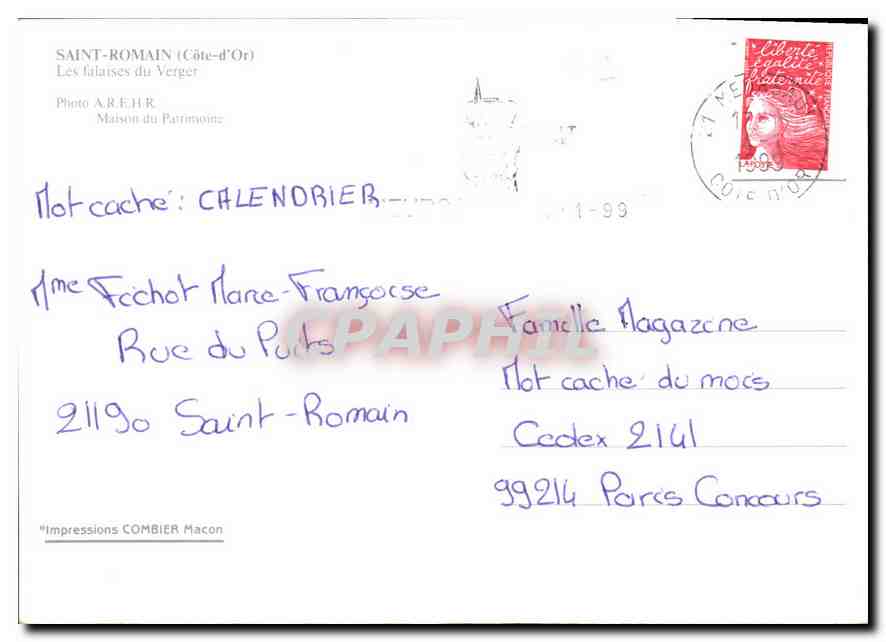 SAINT-ROMAIN (Côte-d'Or)
Les falaises du Verger
Photo A.R.E.H.R.
Maison du Patrimoine
liberté
égalité
fraternité
LA POSTE
CÔTE D'OR
1-99
Mot caché : CALENDRIER
Mme Fechot Marie-Françoise
Rue du Puits
21190 Saint-Romain
CPAPHIL
Famille Magazine
Mot caché du mois
Cedex 2141
99214 Paris Concours
*Impressions COMBIER Macon